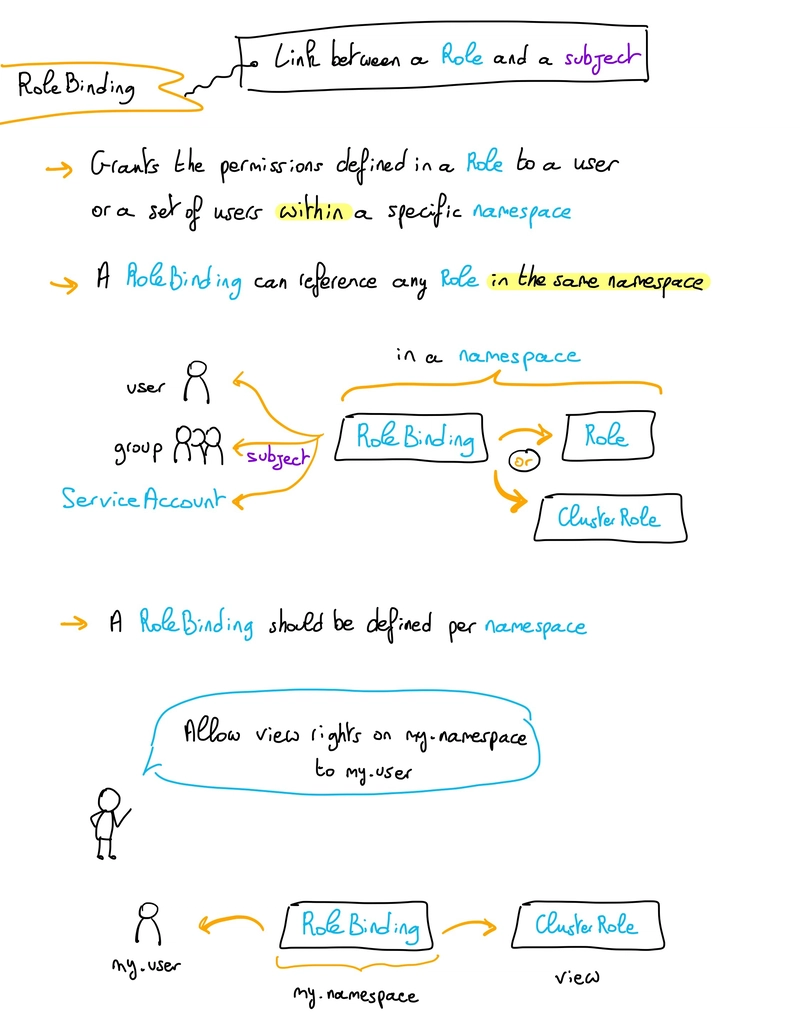 RoleBinding
Link between a Role and a subject
→ Grants the permissions defined in a Role to a user
or a set of users within a specific namespace
→ A RoleBinding can reference any Role in the same namespace
in a namespace
user
group
subject
ServiceAccount
RoleBinding
or
Role
ClusterRole
→ A RoleBinding should be defined per namespace
Allow view rights on my-namespace
to my-user
RoleBinding
ClusterRole
my-user
my-namespace
view